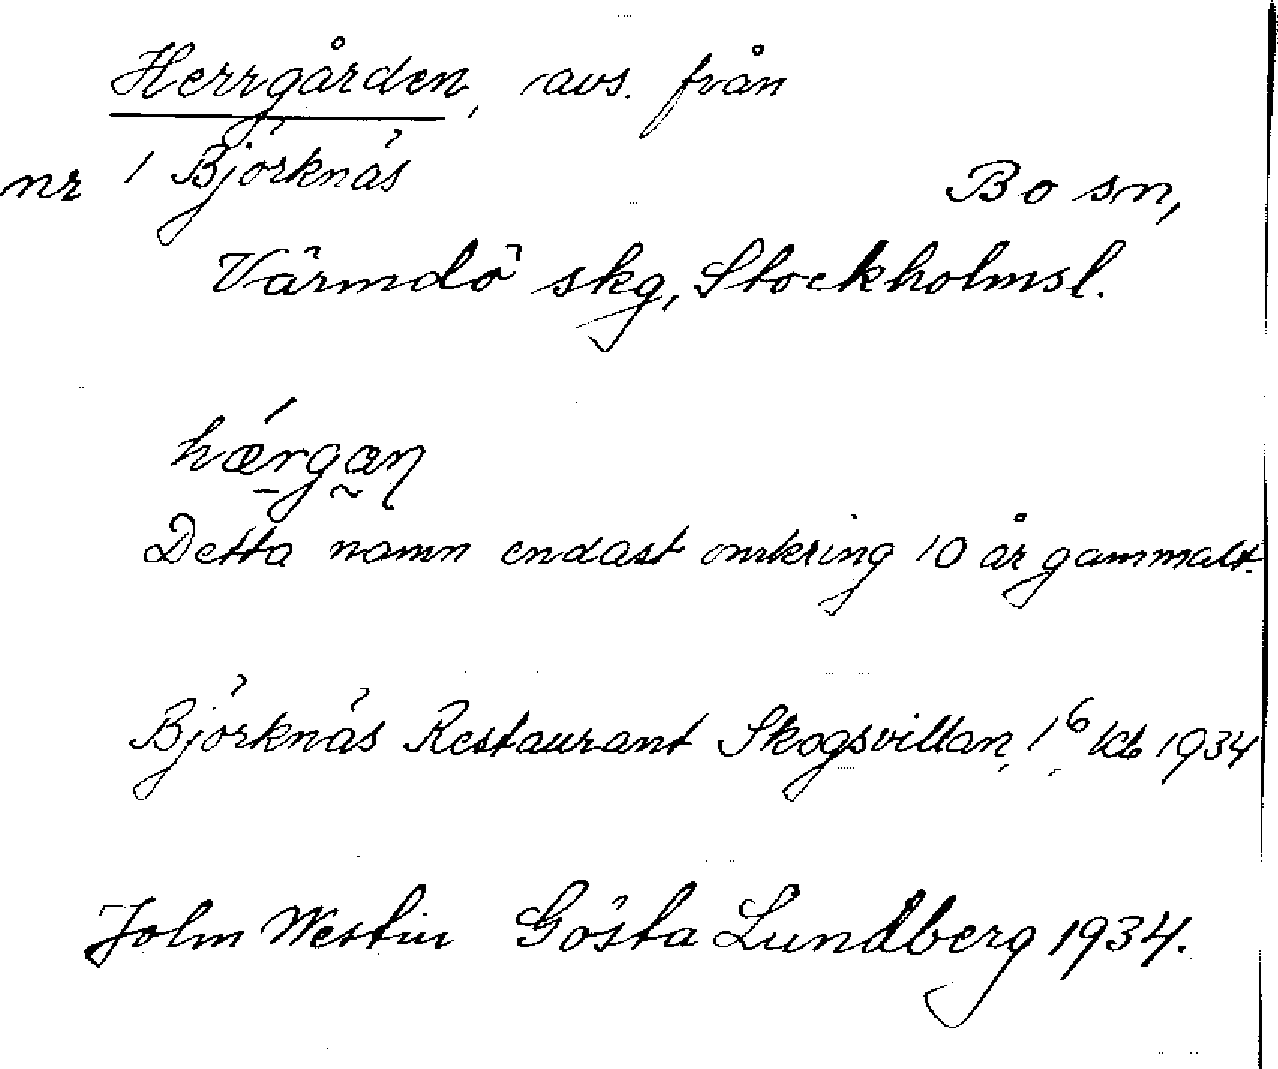 Herrgården, avs. från
nr 1 Björknäs
Bo sn,
Värmdö skg, Stockholmsl.
hǽrgan
Detta namn endast omkring 10 år gammalt.
Björknäs Restaurant Skogsvillan, 1 6 1934
John Westin Gösta Lundberg 1934.